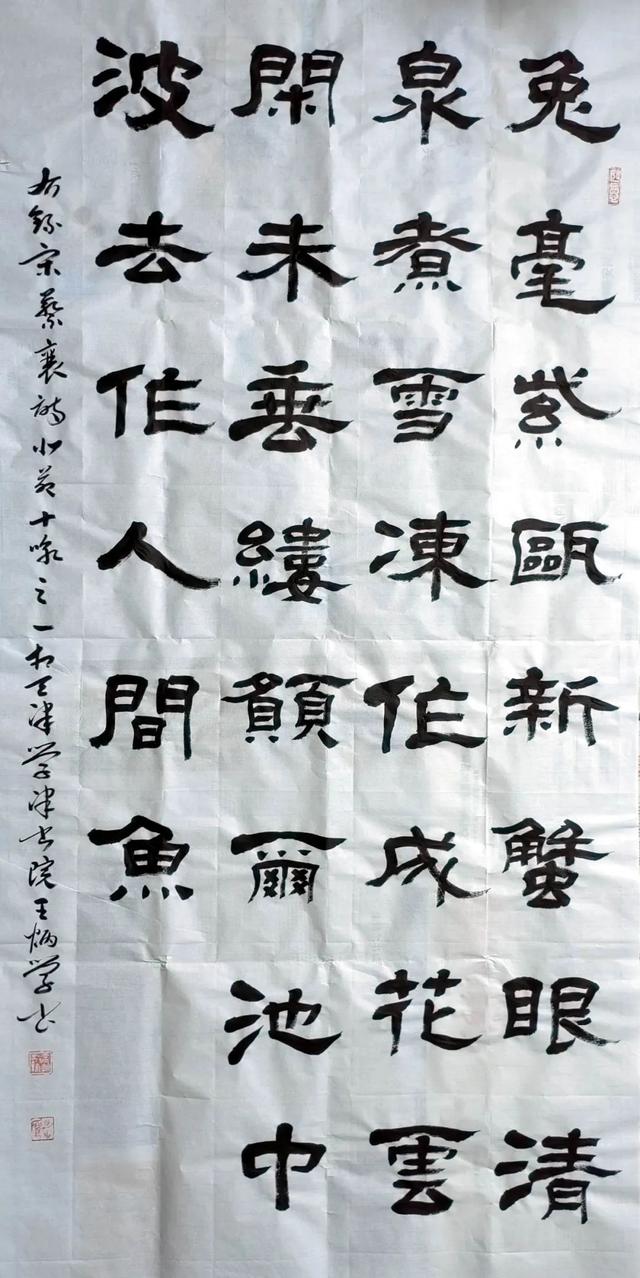 兔毫紫甌新蟹眼清
泉煮雪凍作成花雲
閑未垂縷願爾池中
波去作人間魚
右錄宋蔡襄詩北苑十咏之一於天津学津书院王炳学书